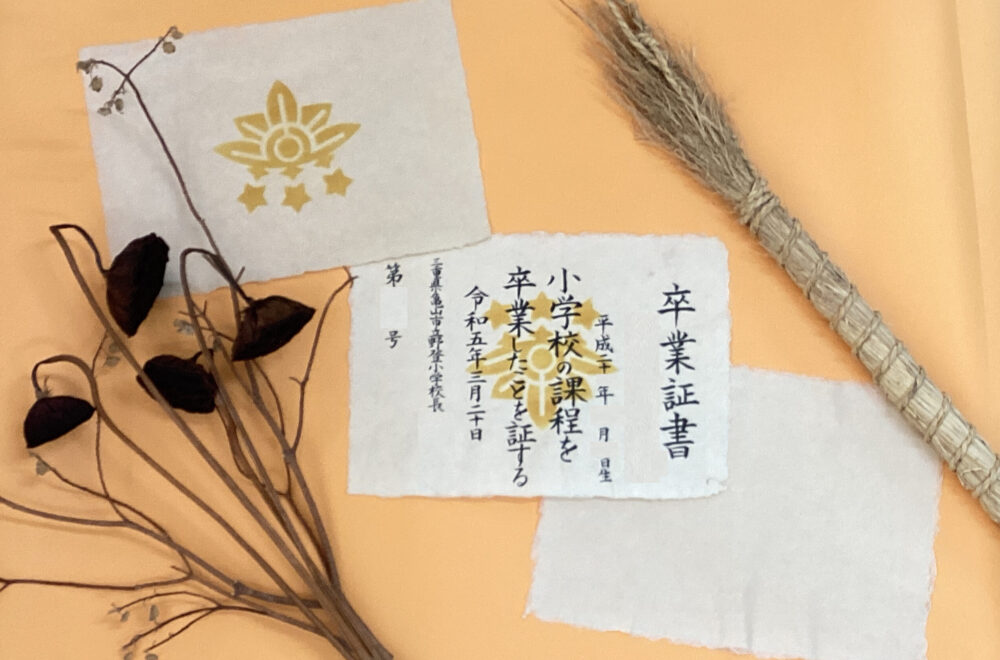 卒業証書
平成二十 年 月 日生
小学校の課程を
卒業したことを証する
令和五年三月二十日
三重県亀山市立野登小学校長
第 号